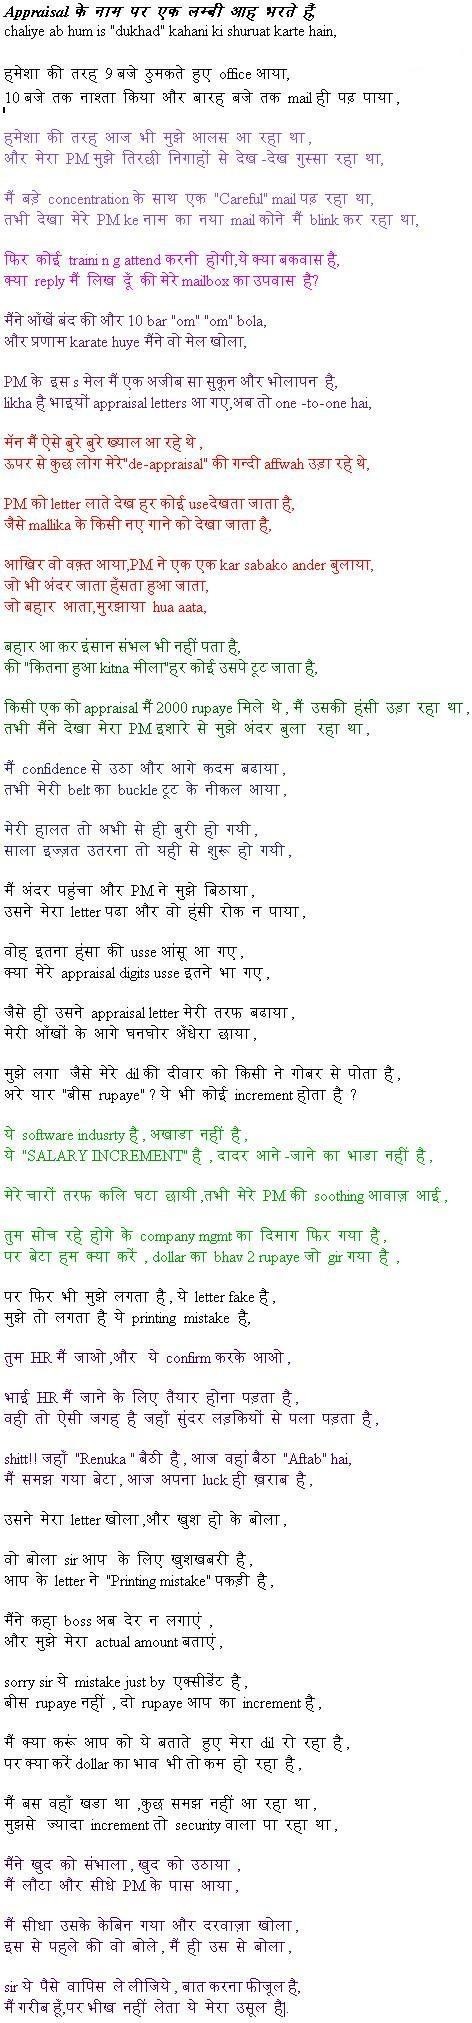 Appraisal के नाम पर एक लम्बी आह भरते हैं
chaliye ab hum is "dukhad" kahani ki shuruat karte hain,
हमेशा की तरह 9 बजे ठुमकते हुए office आया,
10 बजे तक नाश्ता किया और बारह बजे तक mail ही पढ़ पाया ,
हमेशा की तरह आज भी मुझे आलस आ रहा था ,
और मेरा PM मुझे तिरछी निगाहों से देख -देख गुस्सा रहा था,
मैं बड़े concentration के साथ एक "Careful" mail पढ़ रहा था,
तभी देखा मेरे PM ke नाम का नया mail कोने मैं blink कर रहा था,
फिर कोई traini n g attend करनी होगी,ये क्या बकवास है,
क्या reply मैं लिख दूँ की मेरे mailbox का उपवास है?
मैंने आँखें बंद की और 10 bar "om" "om" bola,
और प्रणाम karate huye मैंने वो मेल खोला,
PM के इस s मेल मैं एक अजीब सा सुकून और भोलापन है,
likha है भाइयों appraisal letters आ गए,अब तो one -to-one hai,
मॅन मैं ऐसे बुरे बुरे ख्याल आ रहे थे ,
ऊपर से कुछ लोग मेरे"de-appraisal" की गन्दी affwah उड़ा रहे थे,
PM को letter लाते देख हर कोई useदेखता जाता है,
जैसे mallika के किसी नए गाने को देखा जाता है,
आखिर वो वक़्त आया,PM ने एक एक kar sabako ander बुलाया,
जो भी अंदर जाता हँसता हुआ जाता,
जो बहार आता,मुरझाया hua aata,
बहार आ कर इंसान संभल भी नहीं पता है,
की "कितना हुआ kitna मीला"हर कोई उसपे टूट जाता है,
किसी एक को appraisal मैं 2000 rupaye मिले थे , मैं उसकी हंसी उड़ा रहा था ,
तभी मैंने देखा मेरा PM इशारे से मुझे अंदर बुला रहा था ,
मैं confidence से उठा और आगे कदम बढाया ,
तभी मेरी belt का buckle टूट के नीकल आया ,
मेरी हालत तो अभी से ही बुरी हो गयी ,
साला इज्ज़त उतरना तो यही से शुरू हो गयी ,
मैं अंदर पहुंचा और PM ने मुझे बिठाया ,
उसने मेरा letter पढा और वो हंसी रोक न पाया ,
वोह इतना हंसा की usse आंसू आ गए ,
क्या मेरे appraisal digits usse इतने भा गए ,
जैसे ही उसने appraisal letter मेरी तरफ बढाया ,
मेरी आँखों के आगे घनघोर अँधेरा छाया ,
मुझे लगा जैसे मेरे dil की दीवार को किसी ने गोबर से पोता है ,
अरे यार "बीस rupaye" ? ये भी कोई increment होता है ?
ये software indusrty है , अखाडा नहीं है ,
ये "SALARY INCREMENT" है , दादर आने -जाने का भाडा नहीं है ,
मेरे चारों तरफ कलि घटा छायी ,तभी मेरे PM की soothing आवाज़ आई ,
तुम सोच रहे होगे के company mgmt का दिमाग फिर गया है ,
पर बेटा हम क्या करें , dollar का bhav 2 rupaye जो gir गया है ,
पर फिर भी मुझे लगता है , ये letter fake है ,
मुझे तो लगता है ये printing mistake है,
तुम HR मैं जाओ ,और ये confirm करके आओ ,
भाई HR मैं जाने के लिए तैयार होना पड़ता है ,
वही तो ऐसी जगह है जहाँ सुंदर लड़कियों से पला पड़ता है ,
shitt!! जहाँ "Renuka " बैठी है , आज वहां बैठा "Aftab" hai,
मैं समझ गया बेटा , आज अपना luck ही ख़राब है ,
उसने मेरा letter खोला ,और खुश हो के बोला ,
वो बोला sir आप के लिए खुशखबरी है ,
आप के letter ने "Printing mistake" पकड़ी है ,
मैंने कहा boss अब देर न लगाएं ,
और मुझे मेरा actual amount बताएं ,
sorry sir ये mistake just by एक्सीडेंट है ,
बीस rupaye नहीं , दो rupaye आप का increment है ,
मैं क्या करूं आप को ये बताते हुए मेरा dil रो रहा है ,
पर क्या करें dollar का भाव भी तो कम हो रहा है ,
मैं बस वहाँ खडा था ,कुछ समझ नहीं आ रहा था ,
मुझसे ज्यादा increment तो security वाला पा रहा था ,
मैंने खुद को संभाला , खुद को उठाया ,
मैं लौटा और सीधे PM के पास आया ,
मैं सीधा उसके केबिन गया और दरवाज़ा खोला ,
इस से पहले की वो बोले , मैं ही उस से बोला ,
sir ये पैसे वापिस ले लीजिये , बात करना फीजूल है,
मैं गरीब हूँ,पर भीख नहीं लेता ये मेरा उसूल है].